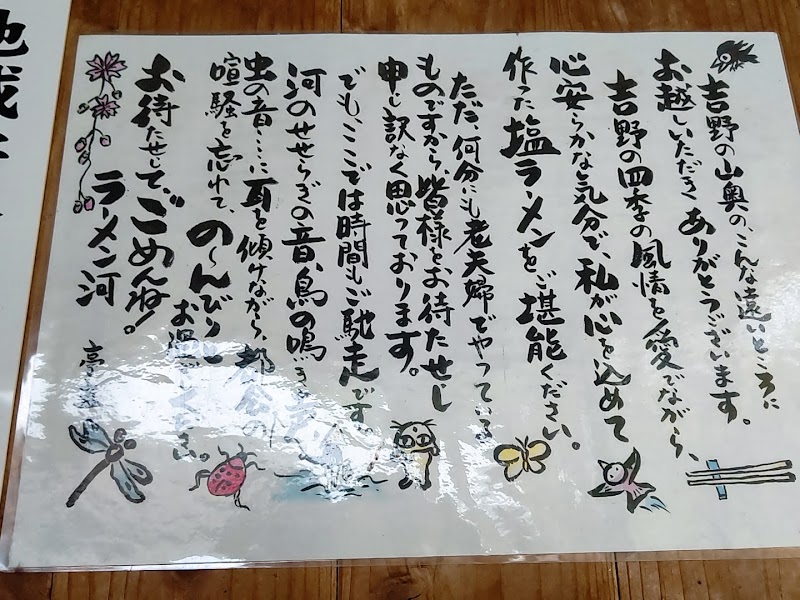 吉野の山奥の、こんな遠いところに
お越しいただき ありがとうございます。
吉野の四季の風情を愛でながら、
心安らかな気分で、私が心を込めて
作った塩ラーメンをご堪能ください。
ただ、何分にも老夫婦でやっている
ものですから、皆様をお待たせし
申し訳なく思っております。
でも、ここでは時間もご馳走です
河のせせらぎの音、鳥の鳴き
虫の音・・・に耳を傾けながら、都会の
喧騒を忘れて、の〜んびりと
お過ごし
お待たせして、ごめんね!
ラーメン河
亭主